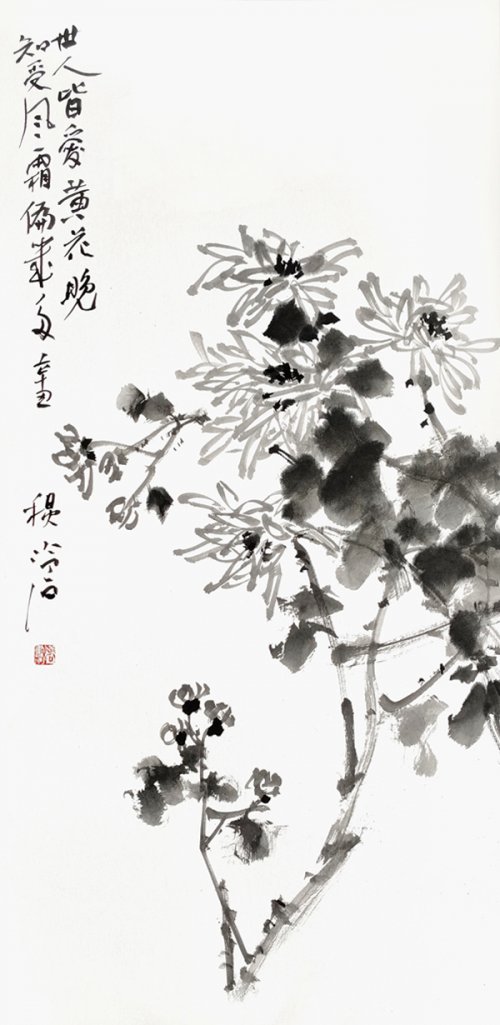 世人皆爱黄花晚
知受风霜偏幾多 辛丑